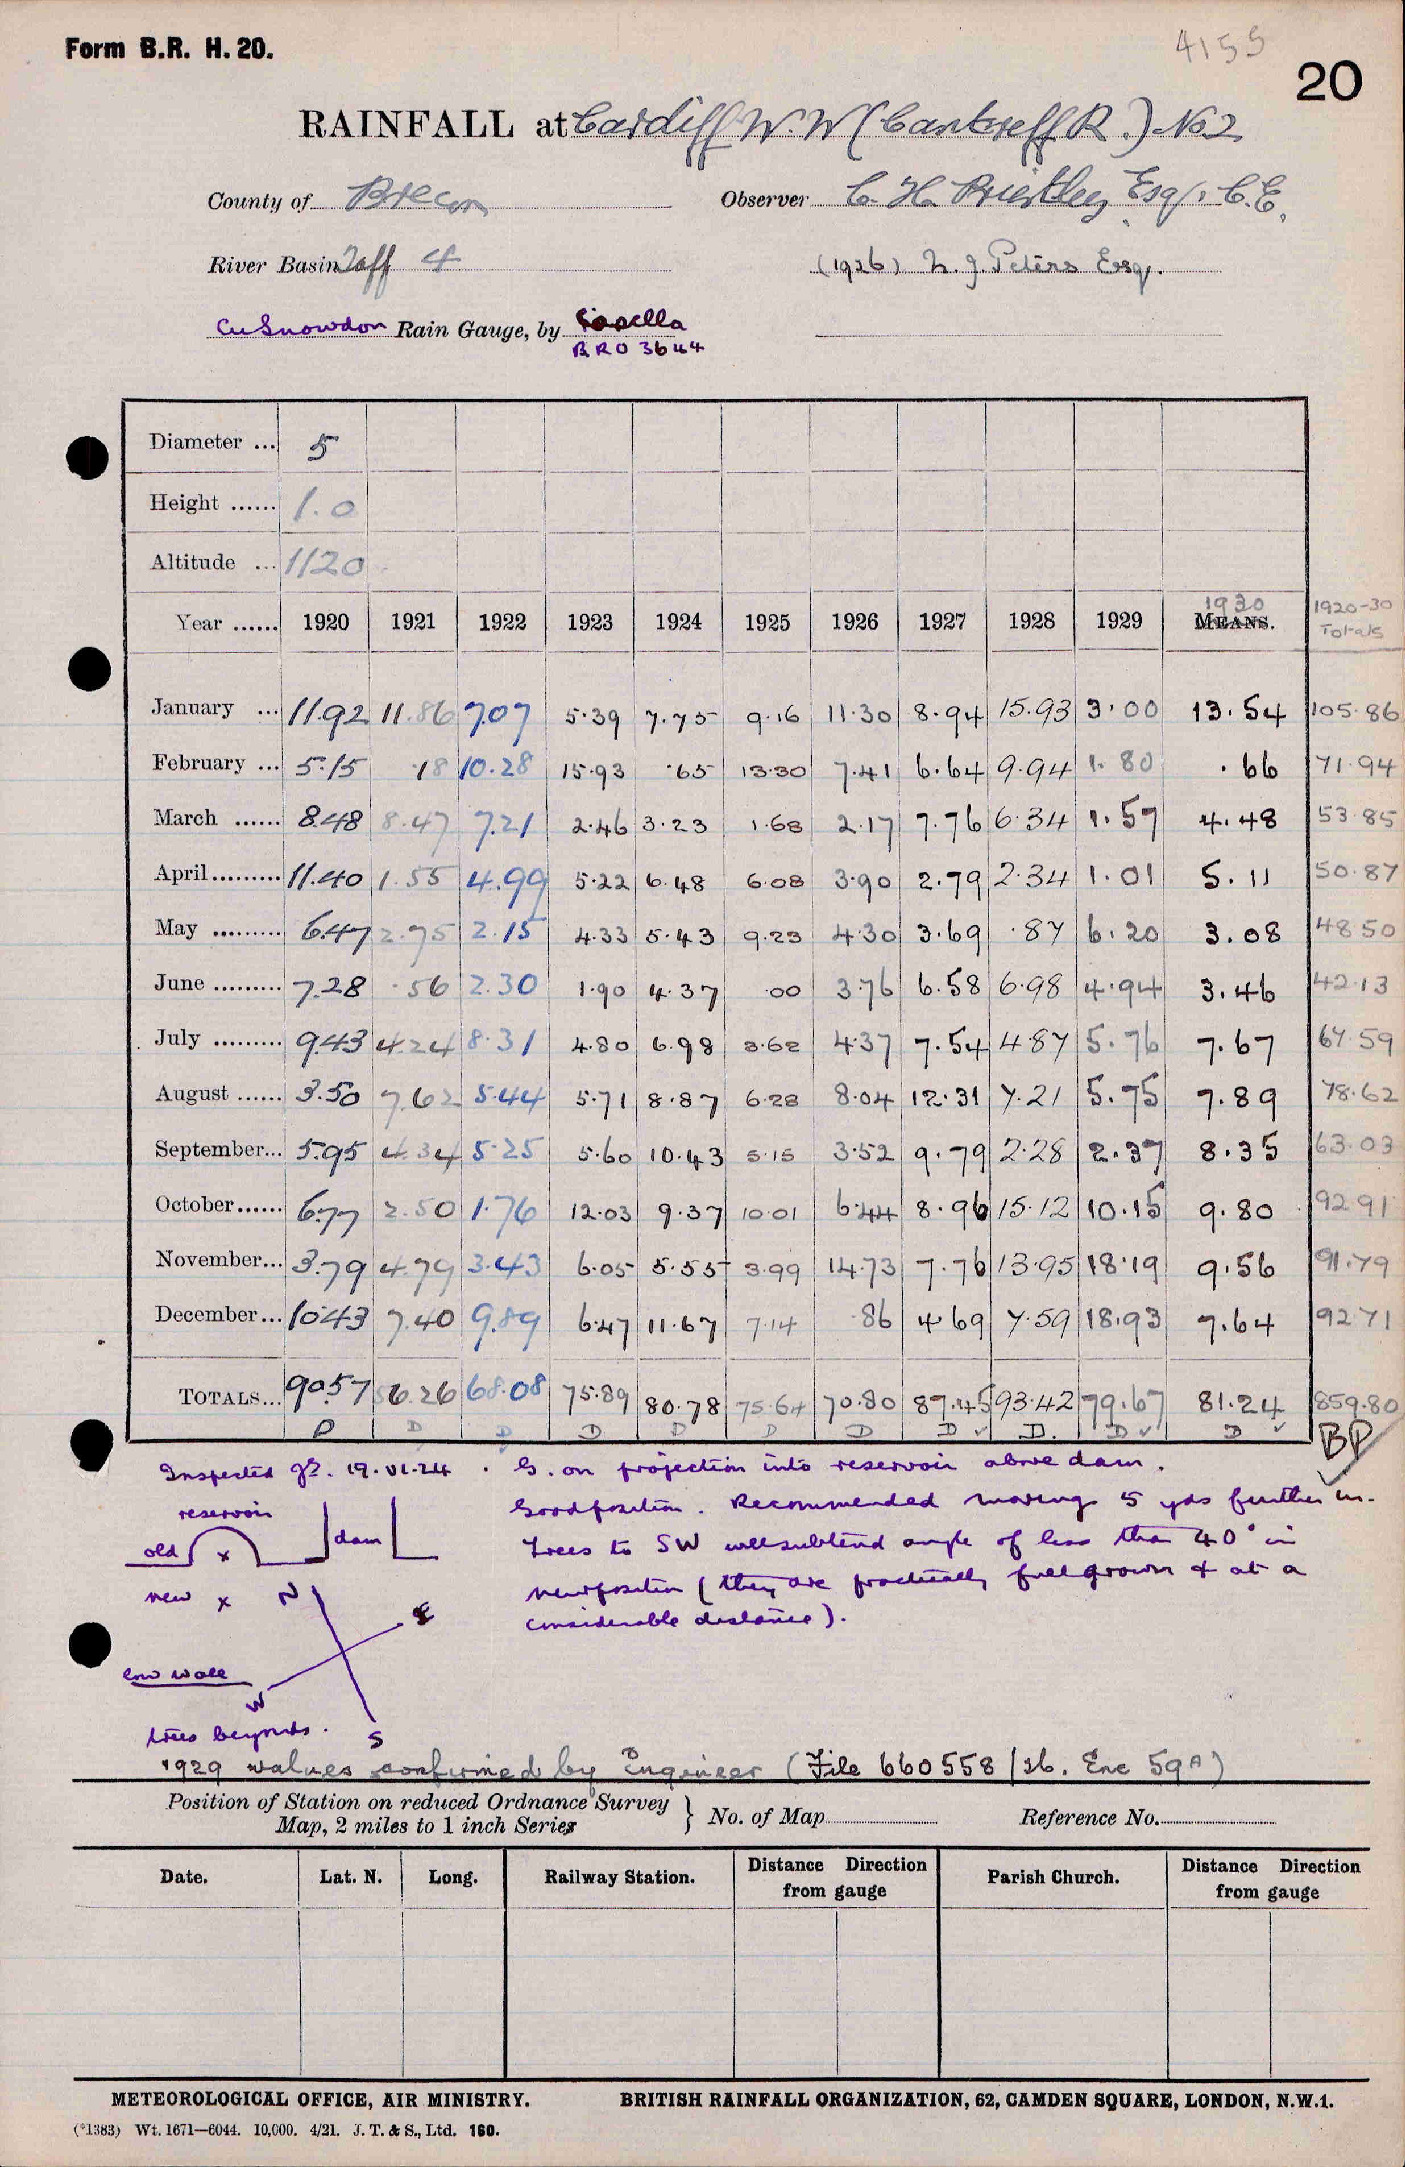 Form B.R. H. 20.
4155
20
RAINFALL at Cardiff W.W (Cantreff R.) No 2
County of Brecon Observer C. H. Priestley Esq. C.E.
River Basin Taff 4 (1926) N. J. Peters Esq.
Cu Snowdon Rain Gauge, by Casella
BRO 3644
Diameter ... 5
Height ...... 1.0
Altitude ... 1120
Year ...... 1920 1921 1922 1923 1924 1925 1926 1927 1928 1929 MEANS. 1930 1920-30 Totals
January ... 11.92 11.86 7.07 5.39 7.75 9.16 11.30 8.94 15.93 3.00 13.54 105.86
February ... 5.15 .18 10.28 15.93 .65 13.30 7.41 6.64 9.94 1.80 .66 71.94
March ...... 8.48 8.47 7.21 2.46 3.23 1.68 2.17 7.76 6.34 1.57 4.48 53.85
April ......... 11.40 1.55 4.99 5.22 6.48 6.08 3.90 2.79 2.34 1.01 5.11 50.87
May ......... 6.47 2.75 2.15 4.33 5.43 9.23 4.30 3.69 .87 6.20 3.08 48.50
June ......... 7.28 .56 2.30 1.90 4.37 .00 3.76 6.58 6.98 4.94 3.46 42.13
July ......... 9.43 4.24 8.31 4.80 6.98 3.62 4.37 7.54 4.87 5.76 7.67 67.59
August ...... 3.50 7.62 5.44 5.71 8.87 6.28 8.04 12.31 7.21 5.75 7.89 78.62
September... 5.95 4.34 5.25 5.60 10.43 5.15 3.52 9.79 2.28 2.37 8.35 63.03
October...... 6.77 2.50 1.76 12.03 9.37 10.01 6.44 8.96 15.12 10.15 9.80 92.91
November... 3.79 4.79 3.43 6.05 5.55 3.99 14.73 7.76 13.95 18.19 9.56 91.79
December... 10.43 7.40 9.89 6.47 11.67 7.14 .86 4.69 7.59 18.93 7.64 92.71
TOTALS... 90.57 56.26 68.08 75.89 80.78 75.64 70.80 87.45 93.42 79.67 81.24 859.80
D D D D D D D D D. D D BP
Inspected 19.VI.24. G. on projection into reservoir above dam.
reservoir Good position. Recommended moving 5 yds further in.
old x dam Trees to SW will subtend angle of less than 40° in
new x N new position (they are practically full grown & at a
E considerable distance).
low wall
W
trees beyond. S
1929 values confirmed by Engineer (File 660558/26. Enc 59A)
Position of Station on reduced Ordnance Survey
Map, 2 miles to 1 inch Series } No. of Map Reference No.
Date. Lat. N. Long. Railway Station. Distance Direction from gauge Parish Church. Distance Direction from gauge
METEOROLOGICAL OFFICE, AIR MINISTRY. BRITISH RAINFALL ORGANIZATION, 62, CAMDEN SQUARE, LONDON, N.W.1.
(*1383) Wt. 1671—6044. 10,000. 4/21. J. T. & S., Ltd. 160.